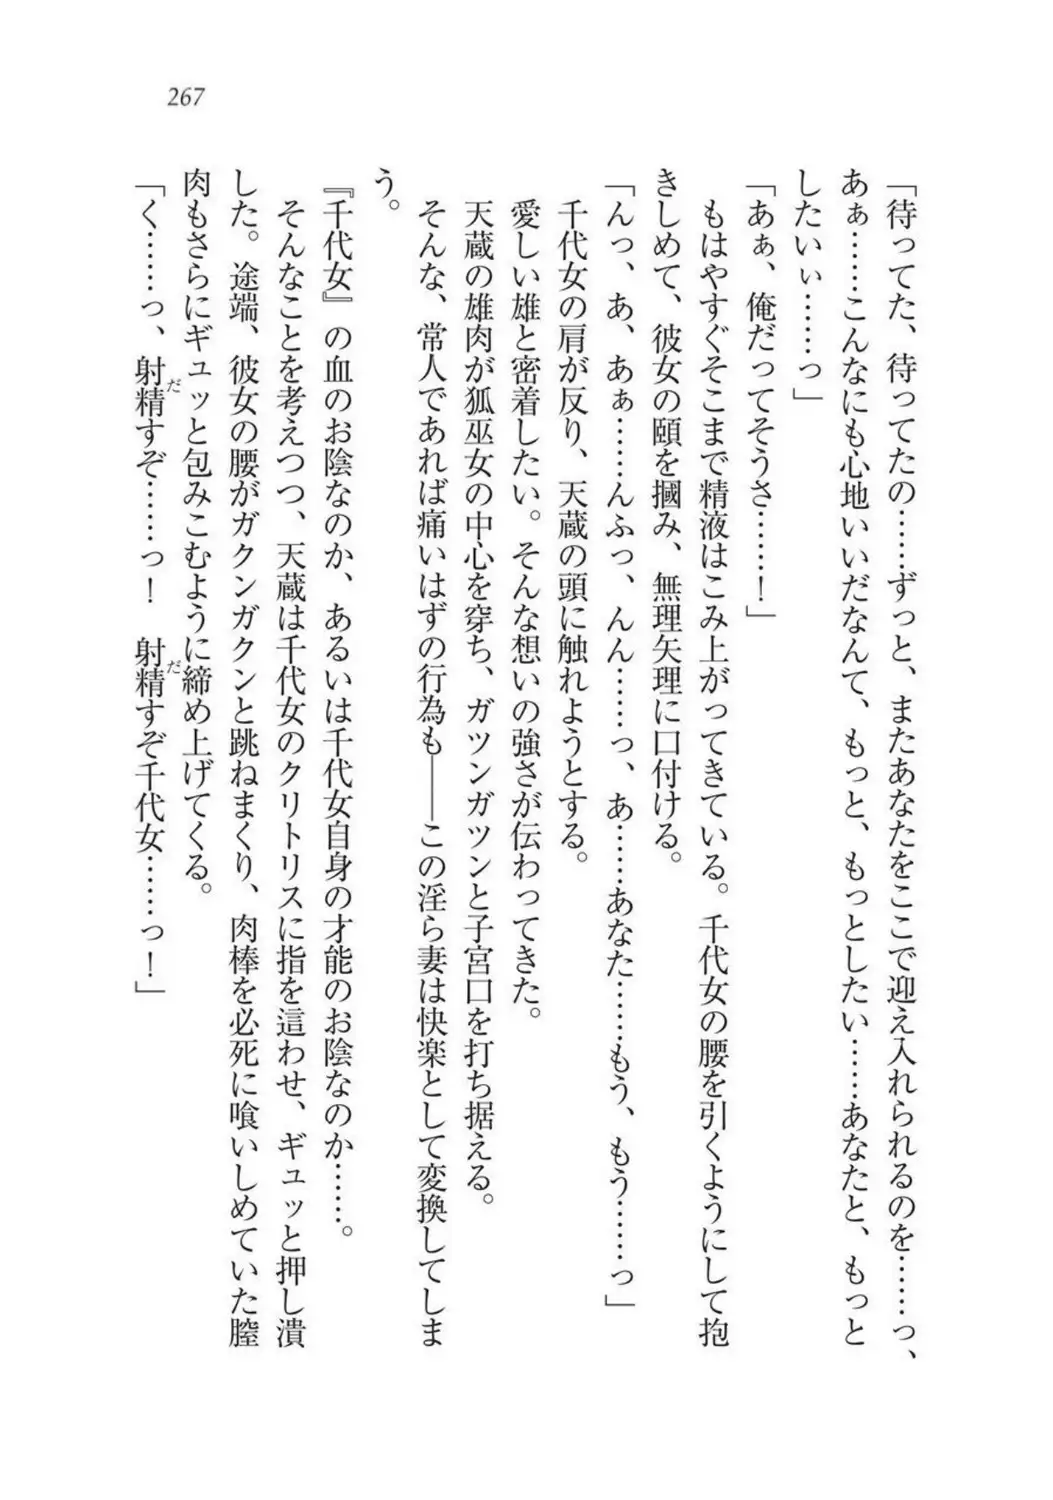 267
「待ってた、待ってたの……ずっと、またあなたをここで迎え入れられるのを……っ、
あぁ……こんなにも心地いいだなんて、もっと、もっとしたい……あなたと、もっと
したいぃ……っ」
「あぁ、俺だってそうさ……！」
もはやすぐそこまで精液はこみ上がってきている。千代女の腰を引くようにして抱
きしめて、彼女の頤を摑み、無理矢理に口付ける。
「んっ、あ、あぁ……んふっ、んん……っ、あ……あなた……もう、もう……っ」
千代女の肩が反り、天蔵の頭に触れようとする。
愛しい雄と密着したい。そんな想いの強さが伝わってきた。
天蔵の雄肉が狐巫女の中心を穿ち、ガツンガツンと子宮口を打ち据える。
そんな、常人であれば痛いはずの行為も――この淫ら妻は快楽として変換してしま
う。
『千代女』の血のお陰なのか、あるいは千代女自身の才能のお陰なのか……。
そんなことを考えつつ、天蔵は千代女のクリトリスに指を這わせ、ギュッと押し潰
した。途端、彼女の腰がガクンガクンと跳ねまくり、肉棒を必死に喰いしめていた膣
肉もさらにギュッと包みこむように締め上げてくる。
「く……っ、射精すぞ……っ！　射精すぞ千代女……っ！」
だ
だ